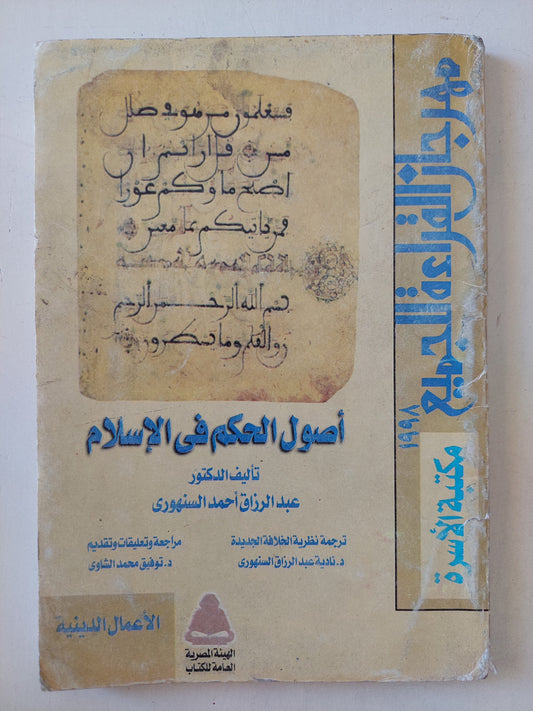 فستعلمون من هو في ضلل
مبين قل ارايتم ان
اصبح ماوكم غورا
فمن ياتيكم بما معين
بسم الله الرحمن الرحيم
ن والقلم وما يسطرون
أصول الحكم فى الإسلام
تأليف الدكتور
عبد الرزاق أحمد السنهورى
ترجمة نظرية الخلافة الجديدة
د. نادية عبد الرزاق السنهورى
مراجعة وتعليقات وتقديم
د. توفيق محمد الشاوى
الأعمال الدينية
الهيئة المصرية
العامة للكتاب
مهرجان القراءة للجميع
١٩٩٨
مكتبة الأسرة